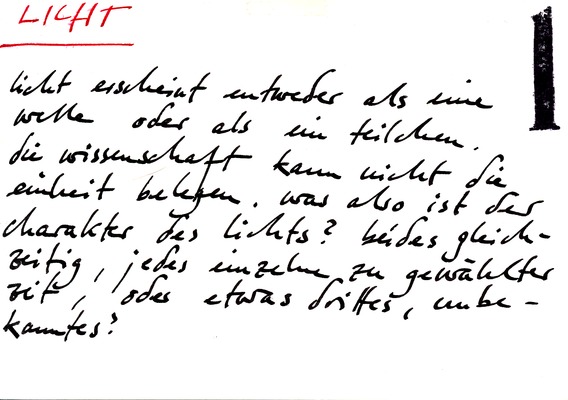 LICHT
1
licht erscheint entweder als eine
welle oder als ein teilchen.
die wissenschaft kann nicht die
einheit belegen. was also ist der
charakter des lichts? beides gleich-
zeitig, jedes einzelne zu gewählter
zeit, oder etwas drittes, unbe-
kanntes?